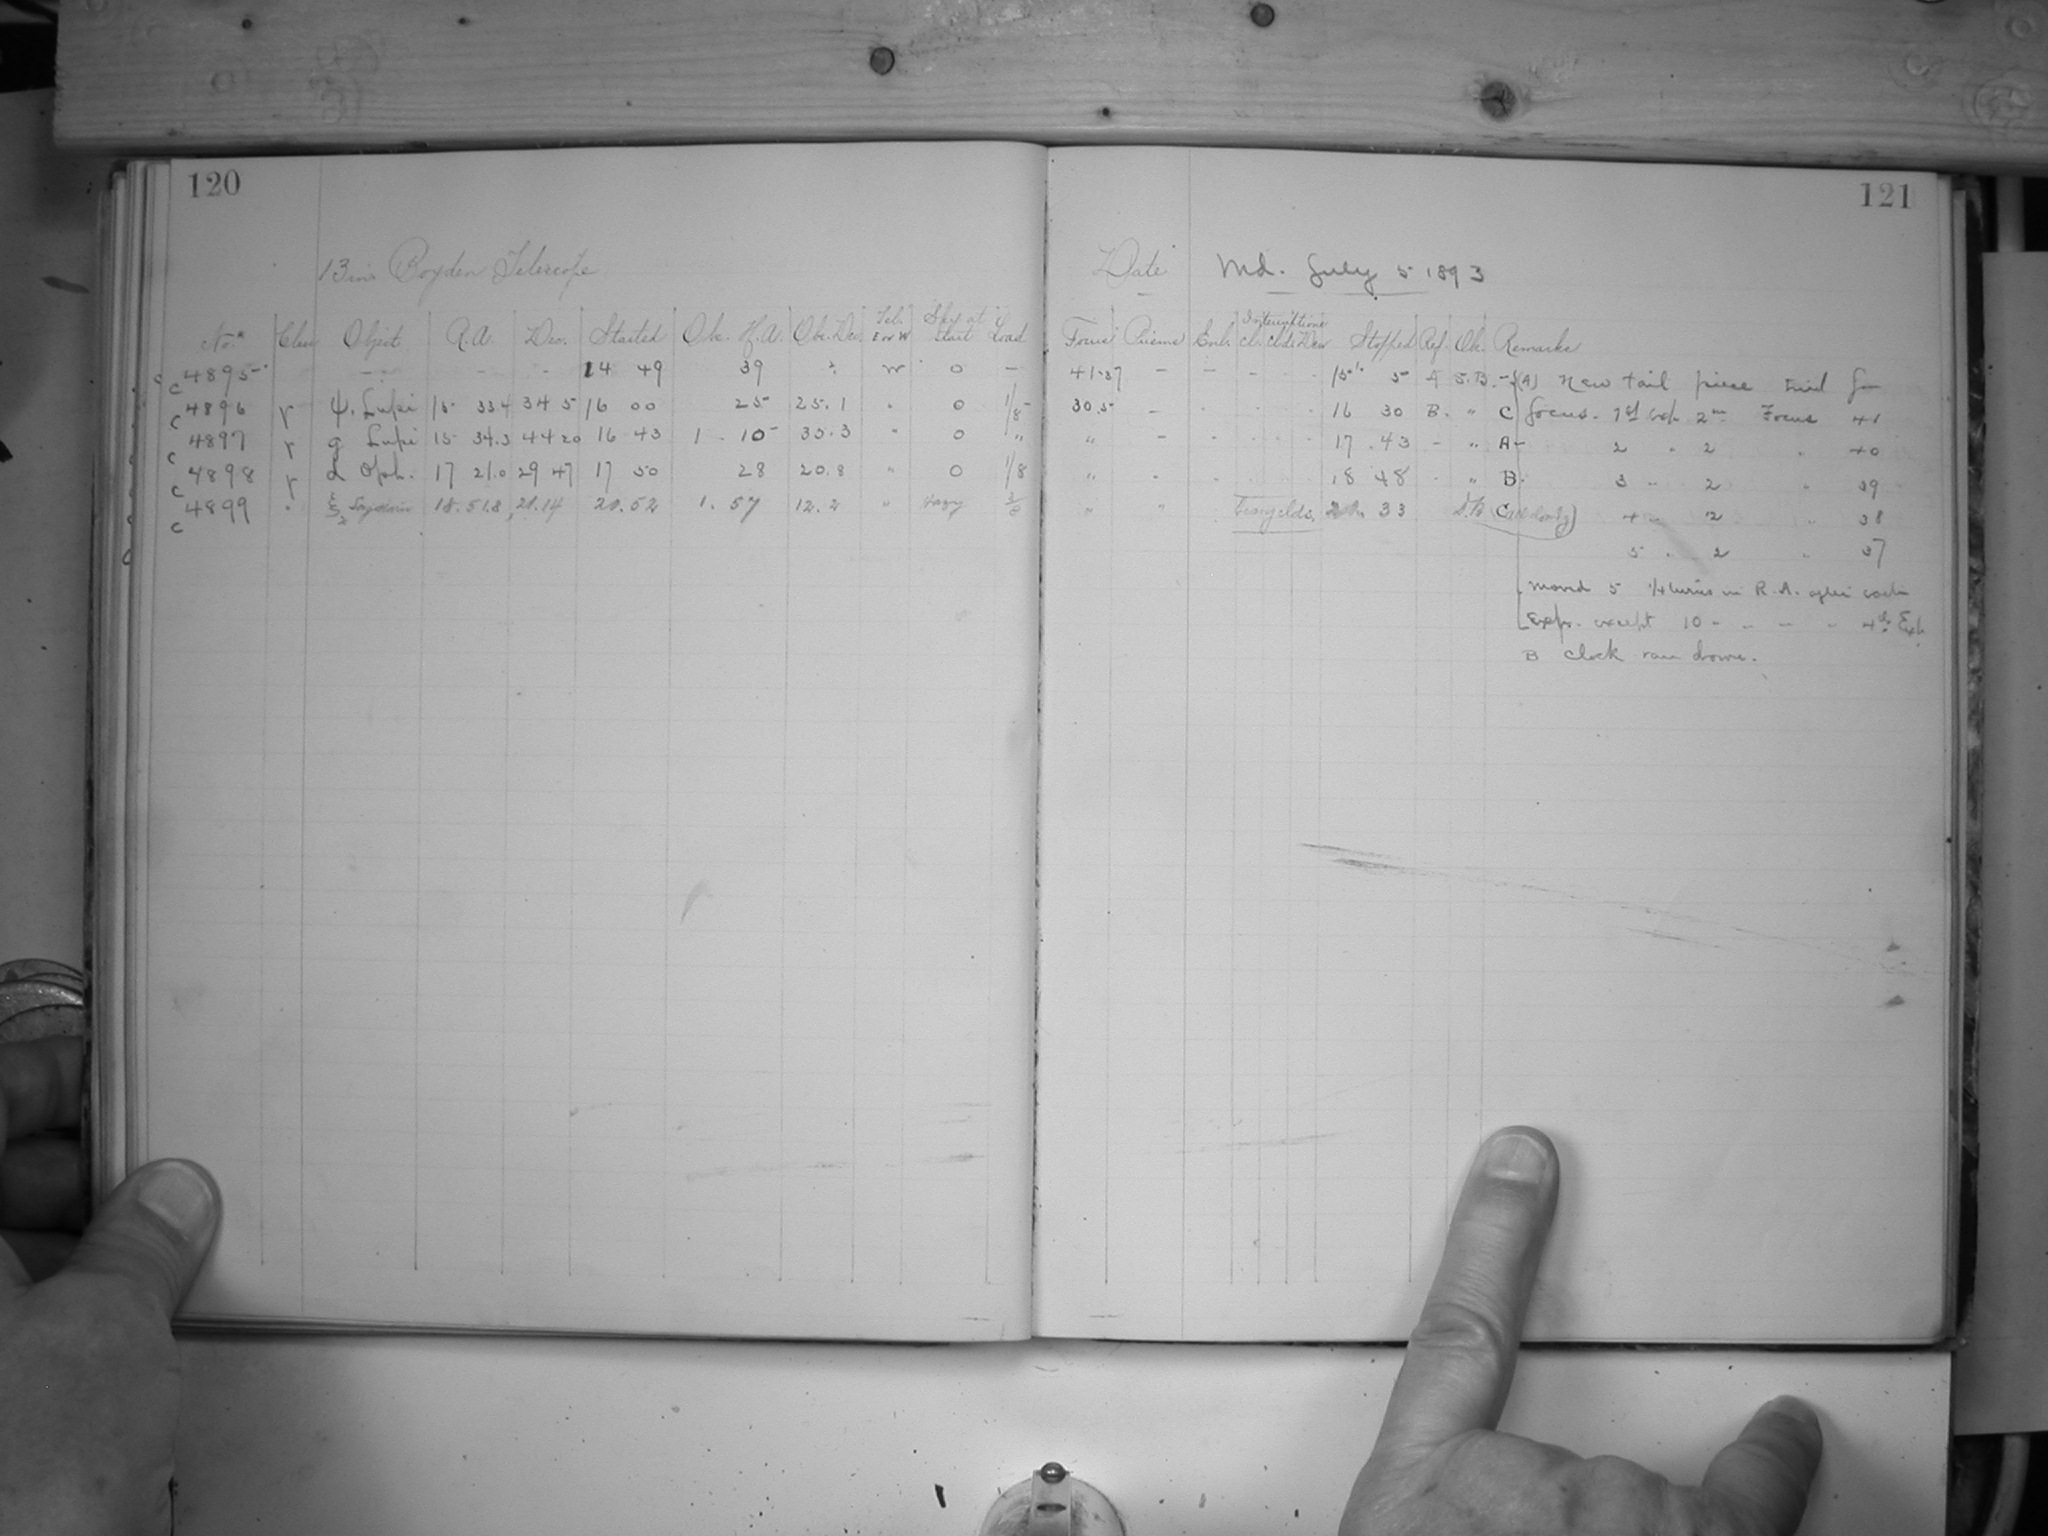 120
13 in. Boyden Telescope
No. Class Object R.A. Dec. Started Obs. H.A. Obs. Dec. Tel. E or W Sky at Start Load
c 4895 - - - 14 49 39 W 0 -
c 4896 r ψ. Lupi 15 33.4 34 5 16 00 25 25.1 " 0 1/8
c 4897 r g Lupi 15 34.3 44 20 16 43 1 10 35.3 " 0 "
c 4898 r d Oph. 17 21.0 29 47 17 50 28 20.8 " 0 1/8
c 4899 " ξ2 18.51.8 21.14 20.52 1. 57 12.2 " Hazy
c
121
Date Wed. July 5 1893
Focus Prisms Interruptions Stopped Ref. Ob. Remarks
41-37 - - - - 15 5 A S.B. - (A) New tail piece tried for
30.5 - 16 30 B. " C focus. 1st exp. 2m Focus 41
" - 17 43 - " A- 2 " 2 " 40
" 18 48 " B 3 " 2 " 39
" " 33 C (cloudy) 4 2 " 38
5 " 2 " 37
Moved 5 1/4 turns in R.A. after each
Exp. except 10 " " - " 4th Exp.
B clock ran down.